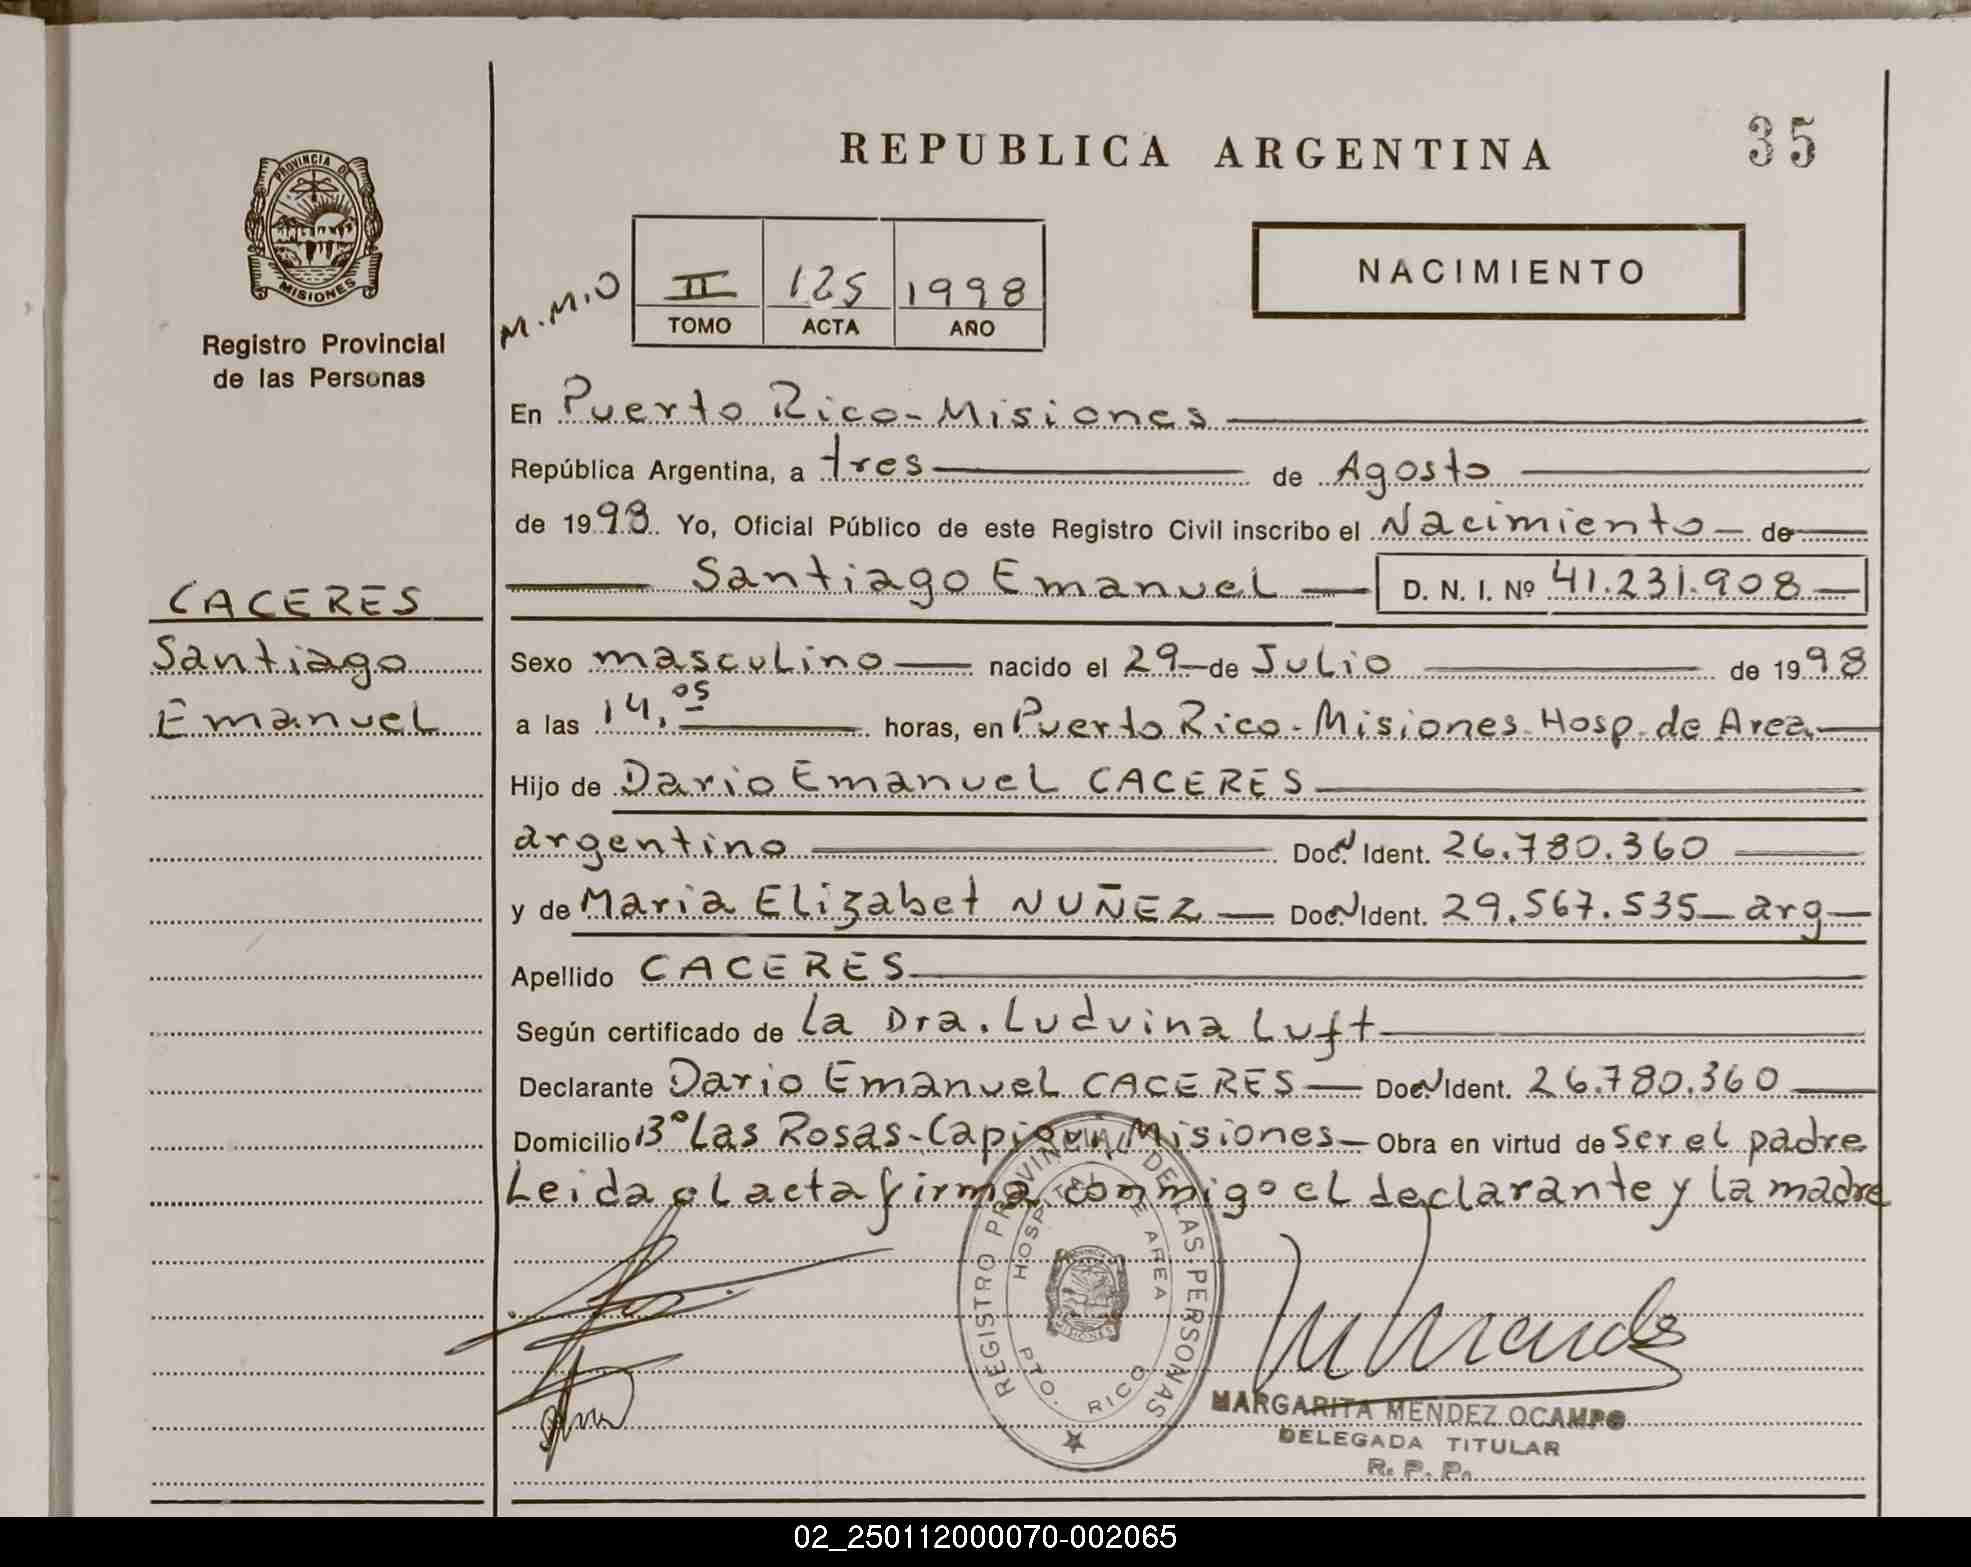 REPUBLICA ARGENTINA
35
PROVINCIA DE MISIONES
Registro Provincial
de las Personas
M.M.O
II 125 1998
TOMO ACTA AÑO
NACIMIENTO
CACERES
Santiago
Emanuel
En Puerto Rico-Misiones
República Argentina, a tres de Agosto
de 1998. Yo, Oficial Público de este Registro Civil inscribo el Nacimiento de
Santiago Emanuel D. N. I. Nº 41.231.908
Sexo masculino nacido el 29 de Julio de 1998
a las 14,05 horas, en Puerto Rico-Misiones-Hosp. de Area
Hijo de Dario Emanuel CACERES
argentino Doc. N Ident. 26.780.360
y de Maria Elizabet NUÑEZ Doc. N Ident. 29.567.535 arg
Apellido CACERES
Según certificado de la Dra. Ludvina Luft
Declarante Dario Emanuel CACERES Doc. N Ident. 26.780.360
Domicilio Bº Las Rosas-Capiovi Misiones Obra en virtud de ser el padre
Leida el acta firma conmigo el declarante y la madre
REGISTRO PROVINCIAL DE LAS PERSONAS
HOSPITAL DE AREA
PTO. RICO
MISIONES
MARGARITA MENDEZ OCAMPO
DELEGADA TITULAR
R. P. P.
02_250112000070-002065